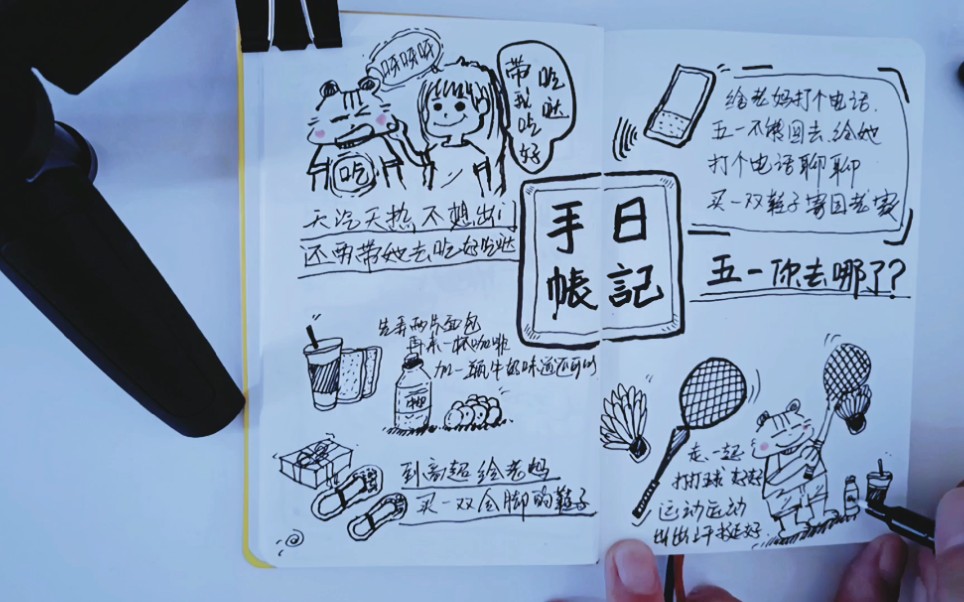 呀呀呀
带我吃好
吃哒
吃
天汽天热不想出门
还要带她去吃好吃哒
先弄两片面包
再来一杯咖啡
加一瓶牛奶味道还可以
到商超给老妈
买一双合脚的鞋子
手日
帐記
给老妈打个电话.
五一不能回去.给她
打个电话聊聊
买一双鞋子寄回老家
五一你去哪了?
走一起
打打球
运动运动
出出汗